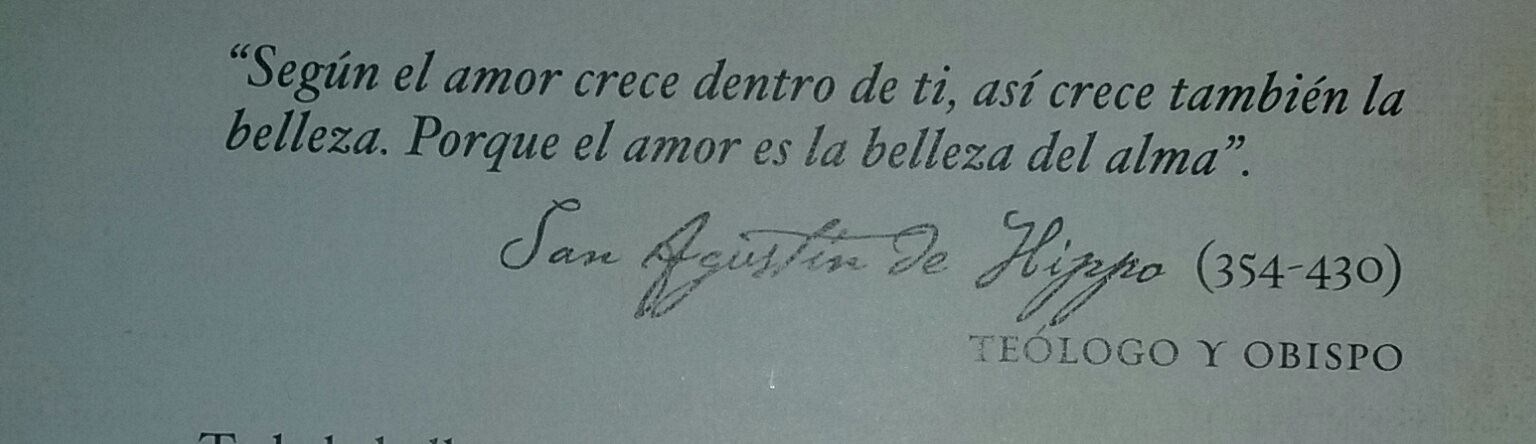 “Según el amor crece dentro de ti, así crece también la
belleza. Porque el amor es la belleza del alma”.
San Agustín de Hippo (354-430)
TEÓLOGO Y OBISPO